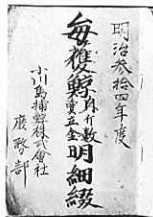 明治参拾四年度
毎獲鯨斤数賣立金明細綴
小川島捕鯨株式會社
廠務部